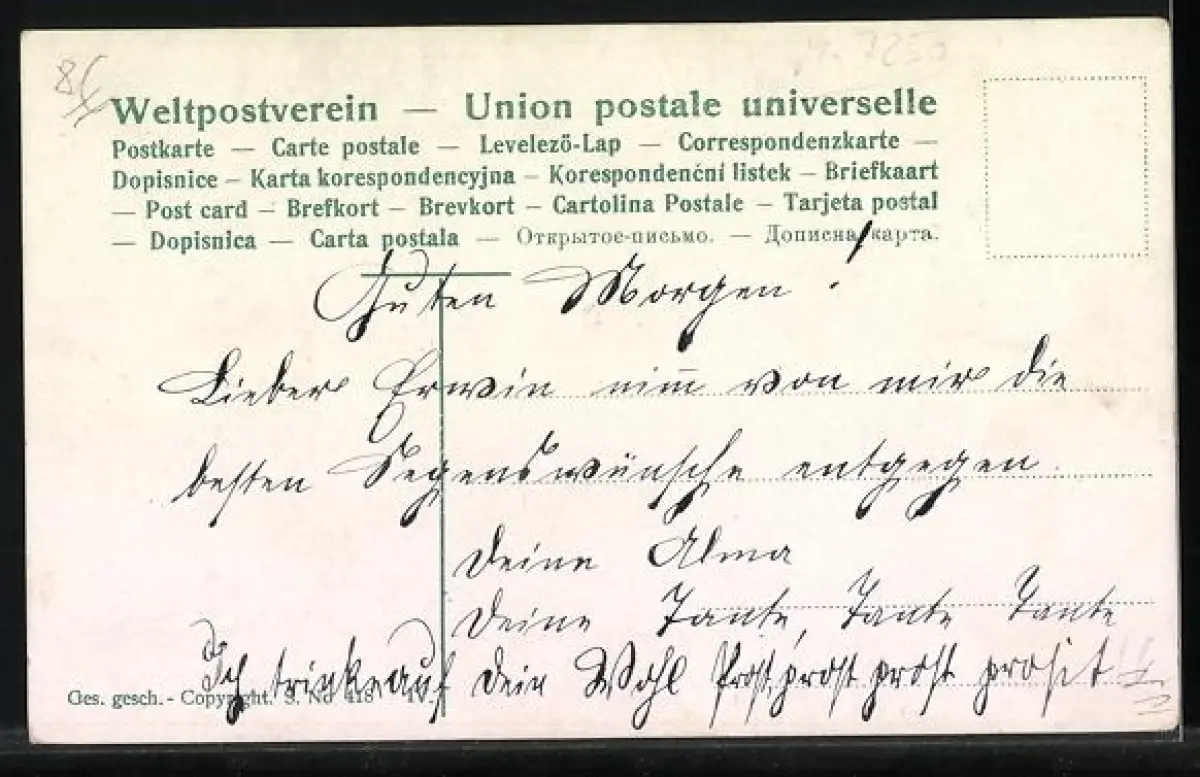 86
Weltpostverein — Union postale universelle
Postkarte — Carte postale — Levelezö-Lap — Correspondenzkarte —
Dopisnice — Karta korespondencyjna — Korespondenćni listek — Briefkaart
— Post card — Brefkort — Brevkort — Cartolina Postale — Tarjeta postal
— Dopisnica — Carta postala — Открытое-письмо. — Дописна карта.
Guten Morgen!
Lieber Erwin nim̅ von mir die
besten Segenswünsche entgegen
Deine Alma
Deine Tante, Tante Tante
Ich trinke auf dein Wohl Prost, prost prost prosit!!!
Ges. gesch. - Copyright. S. No 418 IV.